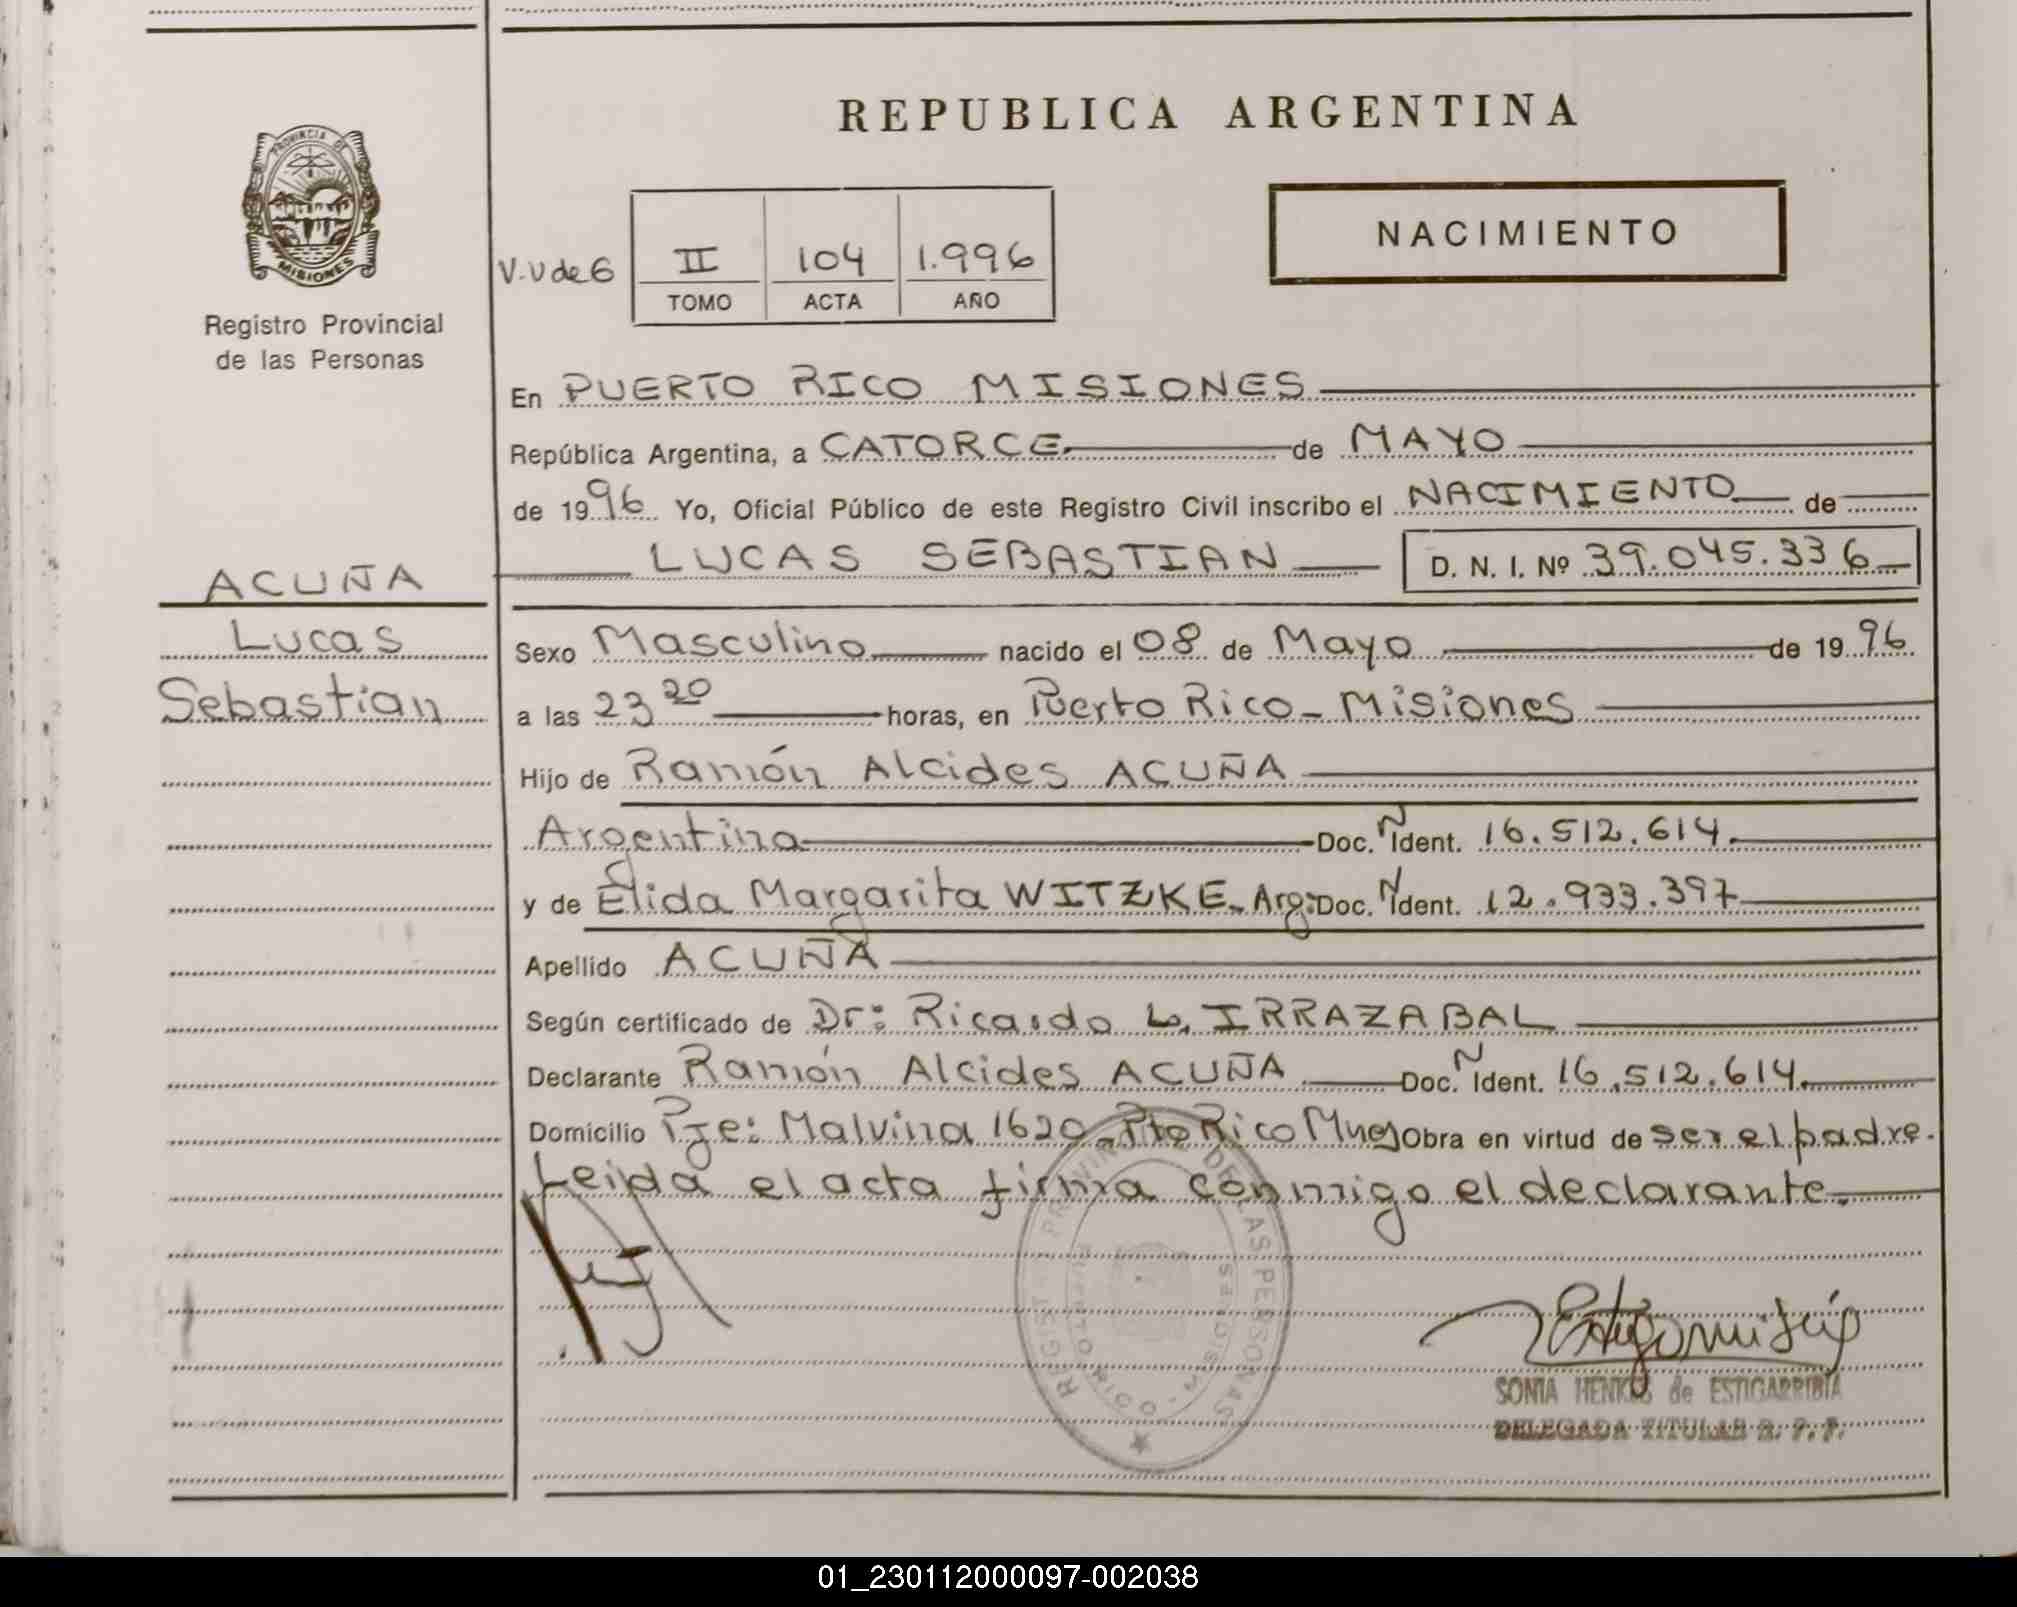 REPUBLICA ARGENTINA
PROVINCIA DE
MISIONES
Registro Provincial
de las Personas
NACIMIENTO
V.U de 6
II 104 1.996
TOMO ACTA AÑO
En PUERTO RICO MISIONES
República Argentina, a CATORCE de MAYO
de 1996 Yo, Oficial Público de este Registro Civil inscribo el NACIMIENTO de
LUCAS SEBASTIAN D. N. I. Nº 39.045.336
ACUÑA
Lucas
Sebastian
Sexo Masculino nacido el 08 de Mayo de 1996.
a las 23 20 horas, en Puerto Rico - Misiones
Hijo de Ramón Alcides ACUÑA
Argentina Doc. N Ident. 16.512.614.
y de Élida Margarita WITZKE. Arg: Doc. N Ident. 12.933.397
Apellido ACUÑA
Según certificado de Dr: Ricardo L. IRRAZABAL
Declarante Ramón Alcides ACUÑA Doc. N Ident. 16.512.614.
Domicilio Pje: Malvina 1620 - Pto Rico Mnes Obra en virtud de ser el padre.
Leida el acta firma conmigo el declarante.
REGISTRO PROVINCIAL DE LAS PERSONAS
PUERTO RICO - MISIONES
SONIA HENKES de ESTIGARRIBIA
DELEGADA TITULAR R. P. P.
01_230112000097-002038